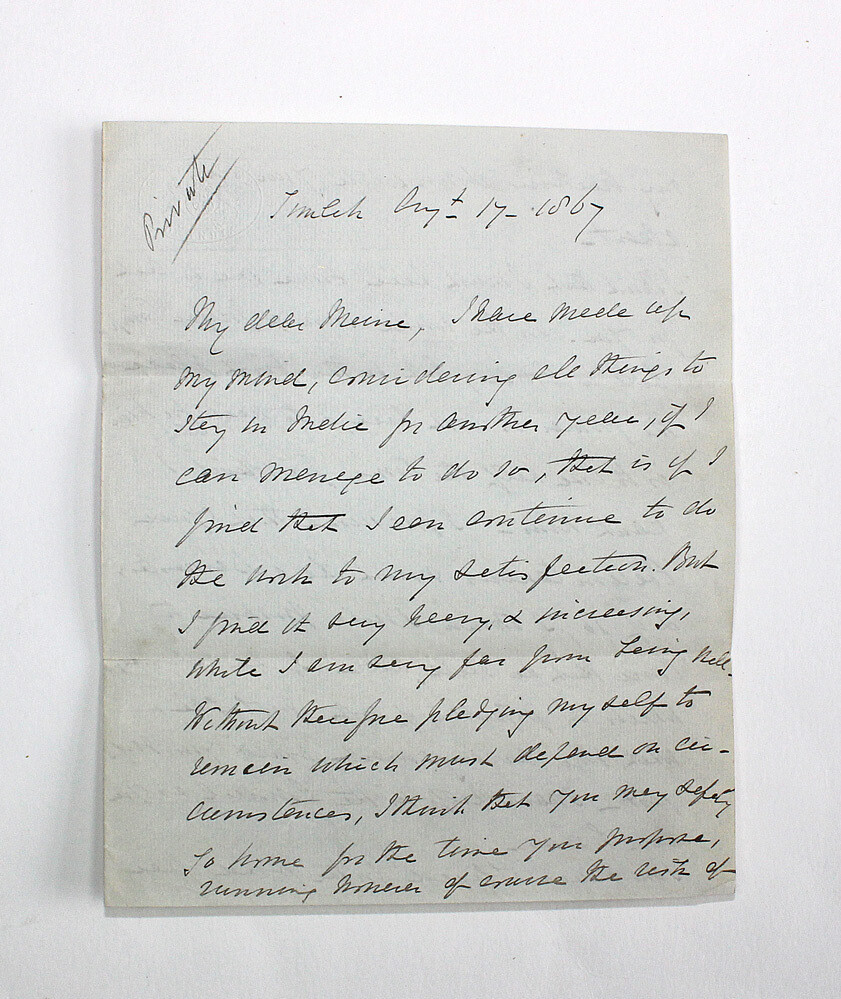 Private
Simlah Augt 17 - 1867
My dear Maine, I have made up
my mind, considering all things to
stay in India for another year, if I
can manage to do so, that is if I
find that I can continue to do
the work to my satisfaction. But
I find it very heavy, & increasing,
while I am very far from being well.
Without therefore pledging myself to
remain which must depend on cir-
cumstances, I think that you may safely
go home for the time you propose,
running however of course the risk of